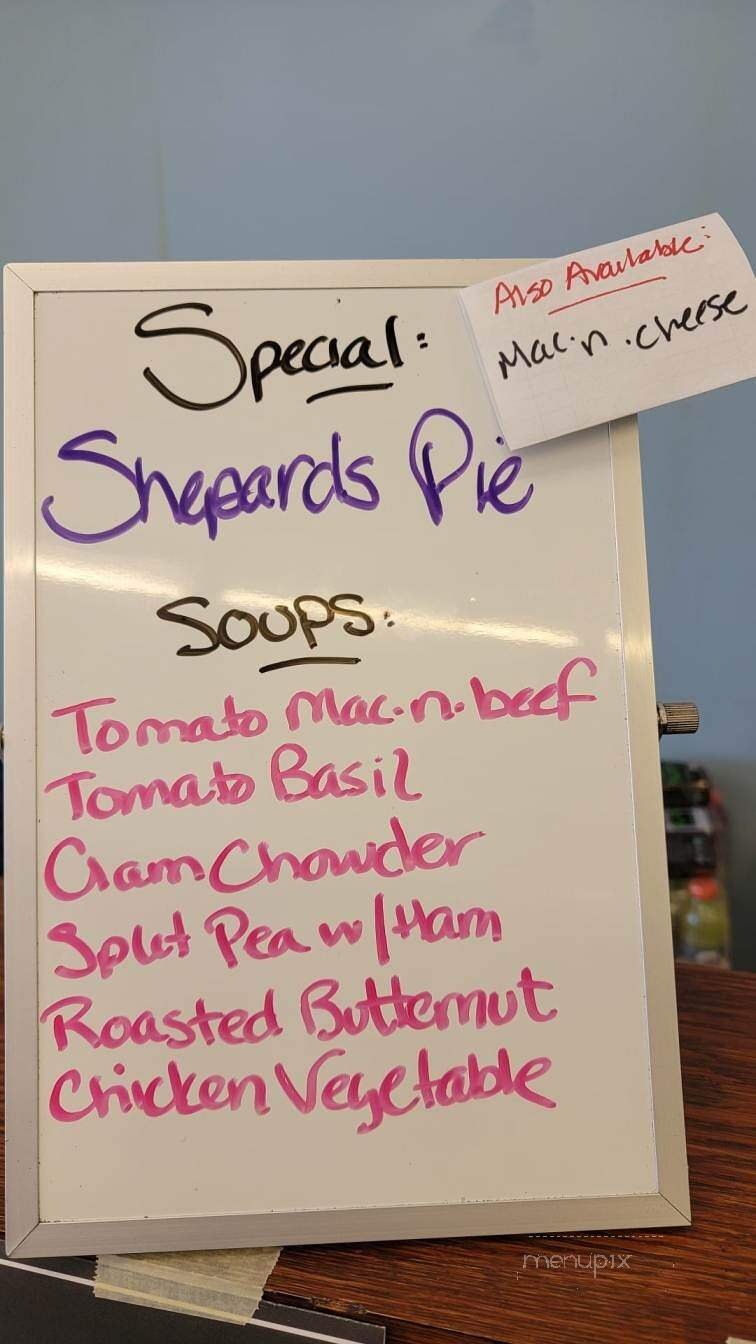 Special:
Also Available:
Mac.n.cheese
Shepards Pie
Soups:
Tomato Mac.n.beef
Tomato Basil
Clam Chowder
Split Pea w/Ham
Roasted Butternut
Chicken Vegetable
menupix